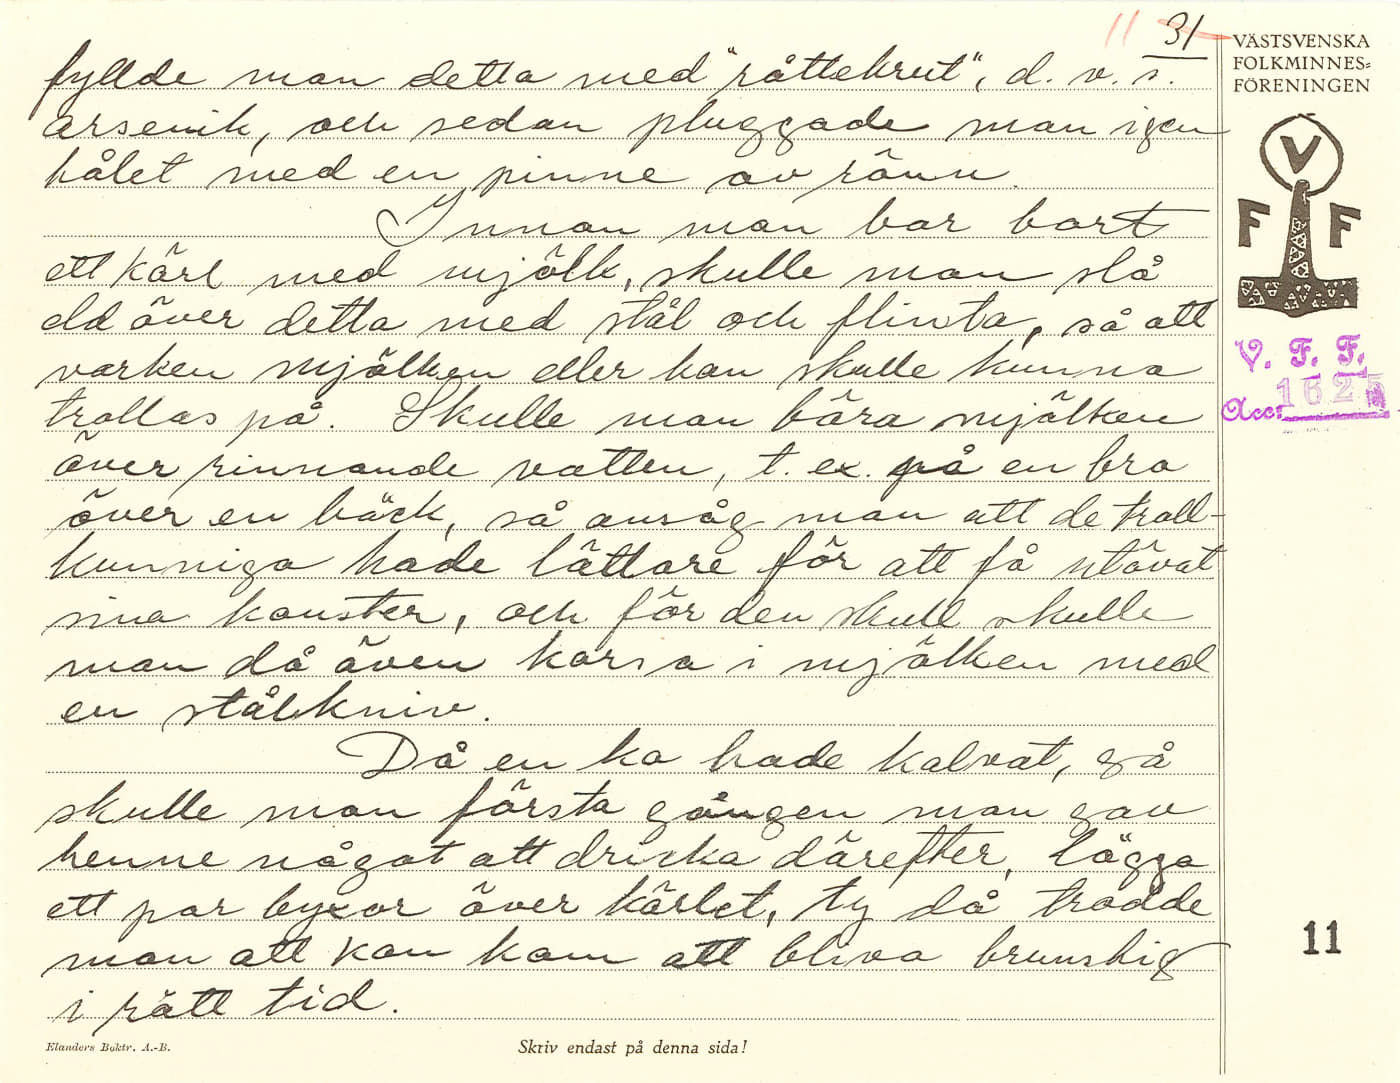 11 31
fyllde man detta med "råttekrut", d. v. s.
arsenik, och sedan pluggade man igen
hålet med en pinne av rönn.
Innan man bar bort
ett kärl med mjölk, skulle man slå
eld över detta med stål och flinta, så att
varken mjölken eller kon skulle kunna
trollas på. Skulle man bära mjölken
över rinnande vatten, t. ex. på en bro
över en bäck, så ansåg man att de troll-
kunniga hade lättare för att få utövat
sina konster, och för den skull skulle
man då även korsa i mjölken med
en stålkniv.
Då en ko hade kalvat, så
skulle man första gången man gav
henne något att dricka därefter, lägga
ett par byxor över kärlet, ty då trodde
man att kon kom att bliva brunstig
i rätt tid.
Elanders Boktr. A.-B.
Skriv endast på denna sida!
VÄSTSVENSKA
FOLKMINNES=
FÖRENINGEN
V
F F
V. F. F.
Acc: 1625
11